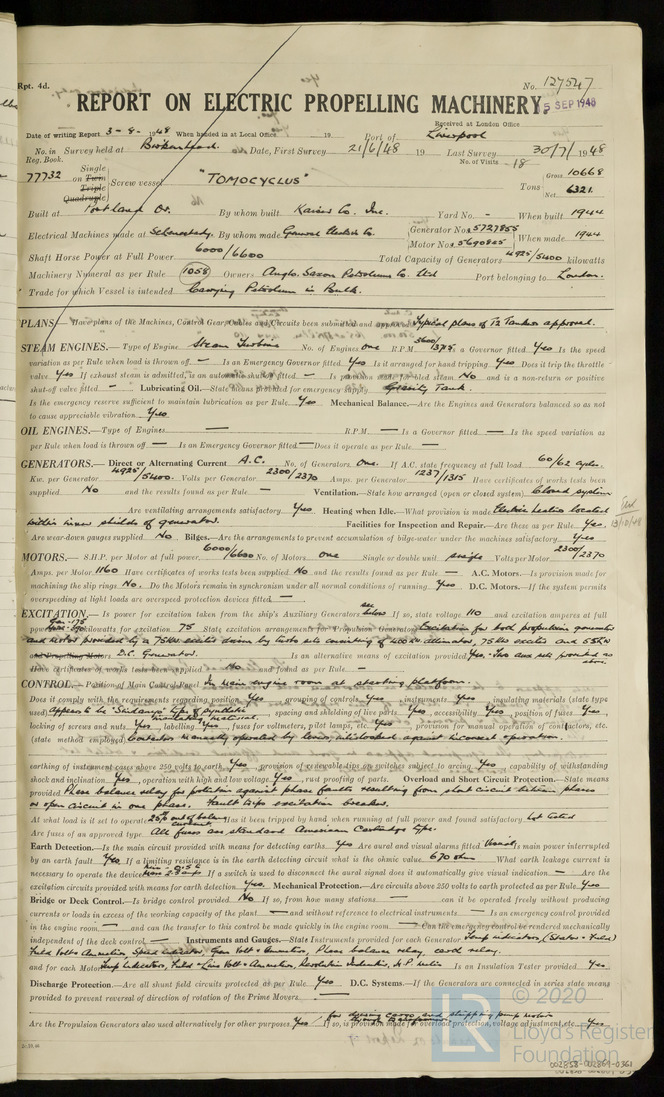 Rpt. 4d.
No. 127547
REPORT ON ELECTRIC PROPELLING MACHINERY.
5 SEP 1948
Received at London Office
Date of writing Report 3-8-1948 When handed in at Local Office 19 Port of Liverpool
No. in Survey held at Birkenhead. Date, First Survey 21/6/48 19 Last Survey 30/7/1948
Reg. Book. No. of Visits 18
77732 on Single Twin Triple Quadruple Screw vessel "TOMOCYCLUS" Tons Gross 10668 Net 6321
Built at Portland Or. By whom built Kaiser Co. Inc. Yard No. - When built 1944
Electrical Machines made at Schenectady. By whom made General Electric Co. Generator No. 5727855 Motor No. 5690825 When made 1944
Shaft Horse Power at Full Power 6000/6600 Total Capacity of Generators 4925/5400 kilowatts
Machinery Numeral as per Rule 1058 Owners Anglo. Saxon Petroleum Co. Ltd Port belonging to London.
Trade for which Vessel is intended Carrying Petroleum in Bulk.
PLANS.—Have plans of the Machines, Control Gear, Cables and Circuits been submitted and approved Typical plans of T2 Tanker approved.
STEAM ENGINES.—Type of Engine Steam Turbine No. of Engines one R.P.M. Is a Governor fitted Yes Is the speed
variation as per Rule when load is thrown off — Is an Emergency Governor fitted Yes Is it arranged for hand tripping Yes Does it trip the throttle
valve Yes If exhaust steam is admitted, is an automatic shut off fitted — Is provision made for bled steam No and is a non-return or positive
shut-off valve fitted — Lubricating Oil.—State means provided for emergency supply Gravity Tank.
Is the emergency reserve sufficient to maintain lubrication as per Rule Yes Mechanical Balance.—Are the Engines and Generators balanced so as not
to cause appreciable vibration Yes
OIL ENGINES.—Type of Engines — R.P.M. — Is a Governor fitted — Is the speed variation as
per Rule when load is thrown off — Is an Emergency Governor fitted — Does it operate as per Rule —
GENERATORS.—Direct or Alternating Current A.C. No. of Generators One. If A.C. state frequency at full load 60/62 cycles.
Kw. per Generator 4925/5400. Volts per Generator 2300/2370 Amps. per Generator 1237/1315 Have certificates of works tests been
supplied No and the results found as per Rule — Ventilation.—State how arranged (open or closed system) Closed system
Are ventilating arrangements satisfactory Yes Heating when Idle.—What provision is made Electric heaters located
within inner shields of generator. Facilities for Inspection and Repair.—Are these as per Rule Yes.
Are wear-down gauges supplied No Bilges.—Are the arrangements to prevent accumulation of bilge-water under the machines satisfactory Yes
13/10/48
MOTORS.—S.H.P. per Motor at full power 6000/6600 No. of Motors one Single or double unit single Volts per Motor 2300/2370
Amps per Motor 1160 Have certificates of works tests been supplied No and the results found as per Rule — A.C. Motors.—Is provision made for
machining the slip rings No. Do the Motors remain in synchronism under all normal conditions of running Yes D.C. Motors.—If the system permits
overspeeding at light loads are overspeed protection devices fitted —
EXCITATION.—Is power for excitation taken from the ship's Auxiliary Generators see below If so, state voltage 110 and excitation amperes at full
power kilowatts for excitation 75 State excitation arrangements of Propulsion Generators Excitation for both propulsion generator
and motor provided by a 75Kw exciter driven by turbo sets consisting of 400 Kw alternator, 75Kw exciter and 55KW
and Propelling Motors D.C. Generator. Is an alternative means of excitation provided Yes. Two aux sets provided as above.
Have certificates of works tests been supplied No and found as per Rule —
CONTROL.—Position of Main Control Panel In main engine room at starting platform.
Does it comply with the requirements regarding position Yes, grouping of controls Yes, instruments Yes, insulating materials (state type
used) Appears to be "Sindanyo" type of synthetic insulating material., spacing and shielding of live parts Yes, accessibility Yes, position of fuses Yes,
locking of screws and nuts Yes, labelling Yes, fuses for voltmeters, pilot lamps, etc. Yes, provision for manual operation of contactors, etc.
(state method employed) Contactors manually operated by levers, interlocked against incorrect operation.
earthing of instrument cases above 250 volts to earth Yes, provision of renewable tips on switches subject to arcing Yes, capability of withstanding
shock and inclination Yes, operation with high and low voltage Yes, rust proofing of parts. Overload and Short Circuit Protection.—State means
provided Phase balance relay for protection against phase faults resulting from short circuit between phases
or open circuit in one phase. Fault trips excitation breaker.
At what load is it set to operate 25% out of balance current. Has it been tripped by hand when running at full power and found satisfactory Not tested
Are fuses of an approved type. All fuses are standard American Cartridge type.
Earth Detection.—Is the main circuit provided with means for detecting earths Yes Are aural and visual alarms fitted Visual, Is main power interrupted
by an earth fault Yes. If a limiting resistance is in the earth detecting circuit what is the ohmic value. 670 ohm What earth leakage current is
necessary to operate the device If a switch is used to disconnect the aural signal does it automatically give visual indication — Are the
excitation circuits provided with means for earth detection Yes. Mechanical Protection.—Are circuits above 250 volts to earth protected as per Rule Yes
Bridge or Deck Control.—Is bridge control provided No If so, from how many stations — can it be operated freely without producing
currents or loads in excess of the working capacity of the plant — and without reference to electrical instruments — Is an emergency control provided
in the engine room — and can the transfer to this control be made quickly in the engine room — Can the emergency control be rendered mechanically
independent of the deck control — Instruments and Gauges.—State Instruments provided for each Generator Temp indicators, (Stator & Field)
Field Volt & Ammeters Speed indicator, Gen Volt & Ammeters, Phase balance relay, earth relay.
and for each Motor Temp indicators, Field & Line Volt & Ammeters, Revolution Indicator, H.P. meter Is an Insulation Tester provided Yes
Discharge Protection.—Are all shunt field circuits protected as per Rule Yes D.C. Systems.—If the Generators are connected in series state means
provided to prevent reversal of direction of rotation of the Prime Movers. —
Are the Propulsion Generators also used alternatively for other purposes Yes, for driving cargo and stripping pump motors If so, is provision made for overload protection, voltage adjustment, etc. Yes
© 2020
Lloyd's Register
Foundation
002858-002869-0361